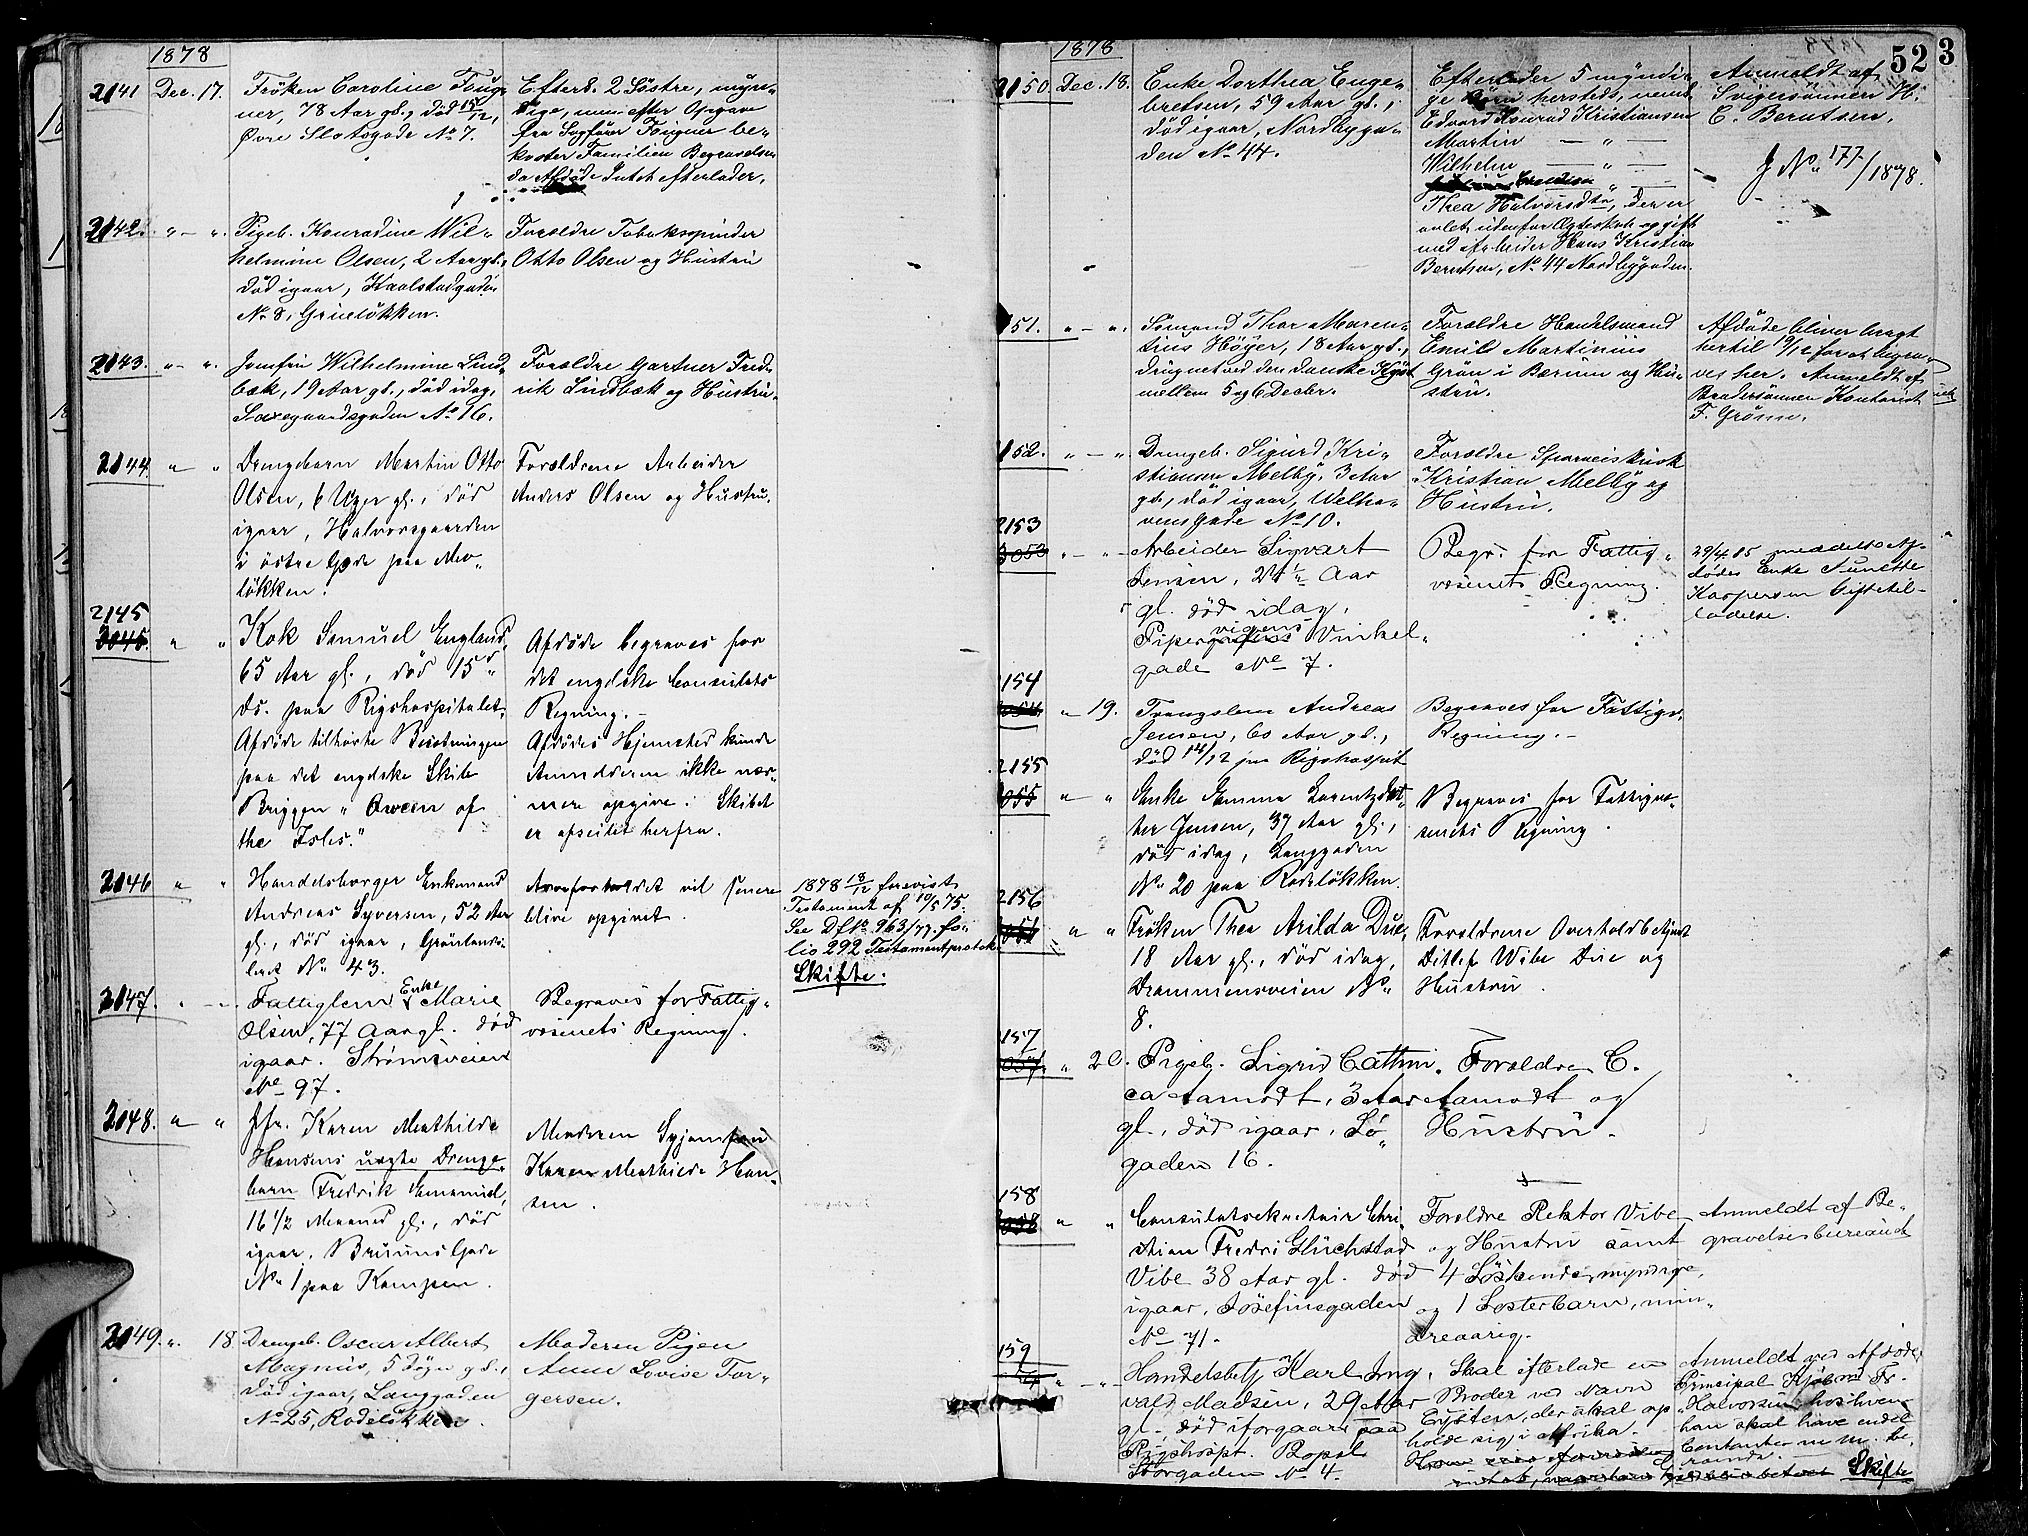 1878
2141 Dec. 17.
Fröken Caroline Fougner, 78 Aar gl., död 15/12,
Øvre Slotsgade No 7.
Efterl. 2 Söstre, myndige, men efter Opgave
fra Sagfører Fougner bekoster Familien Begravelsen
da Afdøde Intet efterlader.
2142. " — ".
Pigeb. Konradine Wilhelmine Olsen, 2 Aar gl.,
död igaar,
No 8, Grüneløkken.
Forældre Tobaksspinder
Otto Olsen og Hustru
2143. " — ".
Jomfru Wilhelmine Lindbæk, 19 Aar gl., död idag,
Saxegaardsgaden No 16.
Forældre Gartner Fredrik Lindbæk og Hustru.
2144. " "
Drengebarn Martin Otto
Olsen, 6 Uger gl., död
igaar, Halvorsgaarden
i östre Gade paa
løkken.
Forældrene Arbeider
Anders Olsen og Hustru.
2145
3045. " "
Kok Samuel England,
65 Aar gl., död 15de
ds. paa Rigshospitalet.
Afdöde tilhörte Besætningen
paa det engelske Skib
Briggen "Queen of
the Isles."
Afdöde begraves for
det engelske Consulats
Regning. —
Afdödes Hjemsted kunde
Anmelderen ikke nærmere opgive. Skibet
er afseilet herfra.
2146 " "
Handelsborger Enkemand
Andreas Syversen, 52 Aar
gl., död igaar, Grönlandsleret No 43.
Arveforholdet vil senere
blive opgivet.
1878 18/12 forevist
Testament af 10/5 75.
See Df No 963/77. folio 292 Testamentprotok.
Skifte.
2147. " — "
Fattiglem Enke Marie
Olsen, 77 Aar gl. död
igaar. Strømsveien
No 97.
Begraves for Fattigvæsenets Regning.
2148. " "
Jfr. Karen Mathilde
Hansens uægte Drengebarn Fredrik Emanuel,
16 1/2 Maaned gl., död
igaar, Bruuns Gade
No 1 paa Kampen.
Moderen Syjomfru
Karen Mathilde Hansen.
2149. ". 18.
Drengeb. Oscar Albert
Magnus, 5 Døgn gl.,
död igaar, Langgaden
No 25, Rodeløkken.
Moderen Pigen
Anne Lovise Torgersen.
1878
52 3
2150. Dec. 18.
Enke Dorthea Engebretsen, 59 Aar gl.,
död igaar, Nordbygaden No 44.
Efterlader 5 myndige Børn hersteds, nemlig
Edvard Konrad Kristiansen
Martin — " —
Wilhelm — " —
" —
Thea Halvorsdtr, der er
avlet udenfor Ægteskab og gift
med Arbeider Hans Kristian
Berntsen, No 44 Nordbygaden.
Anmeldt af
Svigersønnen H.
C. Berntsen.
J No 177/1878.
151. " — ".
Sömand Thor Marentius Høyer, 18 Aar gl.,
druknet ved den danske Kyst
mellem 5 og 6 Decbr.
Forældre Handelsmand
Emil Martinius
Grøn i Bærum og Hustru.
Afdøde bliver bragt
hertil 19/12 for at begraves her. Anmeldt af
Brodersønnen Kontorist
F. Grønn.
152. " — "
Drengeb. Sigurd Kristiansen Melby, 3 Aar
gl., död igaar, Welhavensgade No 10.
Forældre Sporveiskusk
Kristian Melby og
Hustru.
2153
3053 " — "
Arbeider Sigvart
Jensen, Aar
gl. död idag,
Pipervigens Vinkelgade No 7.
Begr. for Fattigvæsenets Regning.
29/4 85 meddelt Afdødes Enke
Kaspersen Giftetilladelse.
154
3054 " 19.
Tvangslem Andreas
Jensen, 60 Aar gl.,
död 14/12 paa Rigshospit.
Begraves for Fattigv.
Regning. —
2155
3055 " "
Enke Emma Lorentzdatter Jensen, 37 Aar gl.,
död idag, Langgaden
No 20 paa Rodeløkken.
Begraves for Fattigvæsenets Regning.
2156
3056 " "
Fröken Thea Arilda Due,
18 Aar gl., död idag,
Drammensveien No
8.
Forældrene Overtoldbetjent
Ditlef Wibe Due og
Hustru.
157
3057. " 20.
Pigeb. Sigrid Cathrinca Aamodt, 3 Aar
gl., död igaar, Søgaden 16.
Forældre C.
Aamodt og
Hustru.
158
3058 " "
Consulatsekretair Christian Fredri Glückstad
Vibe 38 Aar gl. död
igaar, Josefinegaden
No 71.
Forældre Rektor Vibe
og Hustru samt
4 Söskende, myndige,
og 1 Søsterbarn, mindreaarig.
Anmeldt af Begravelsesbureaut
159
" — "
Handelsbetj Karl Ingvald Madsen, 29 Aar
gl., död iforgaars paa
Rigshospt. Bopæl
Storgaden No 4.
Skal efterlade en
Broder ved Navn
Eystein, der skal opholde sig i Afrika.
Anmeldt ved Afdødes
Principal Kjøbmd Fr.
Halvorsen, hos hvem
han skal have endel
Contanter m. m. beroende.
Skifte